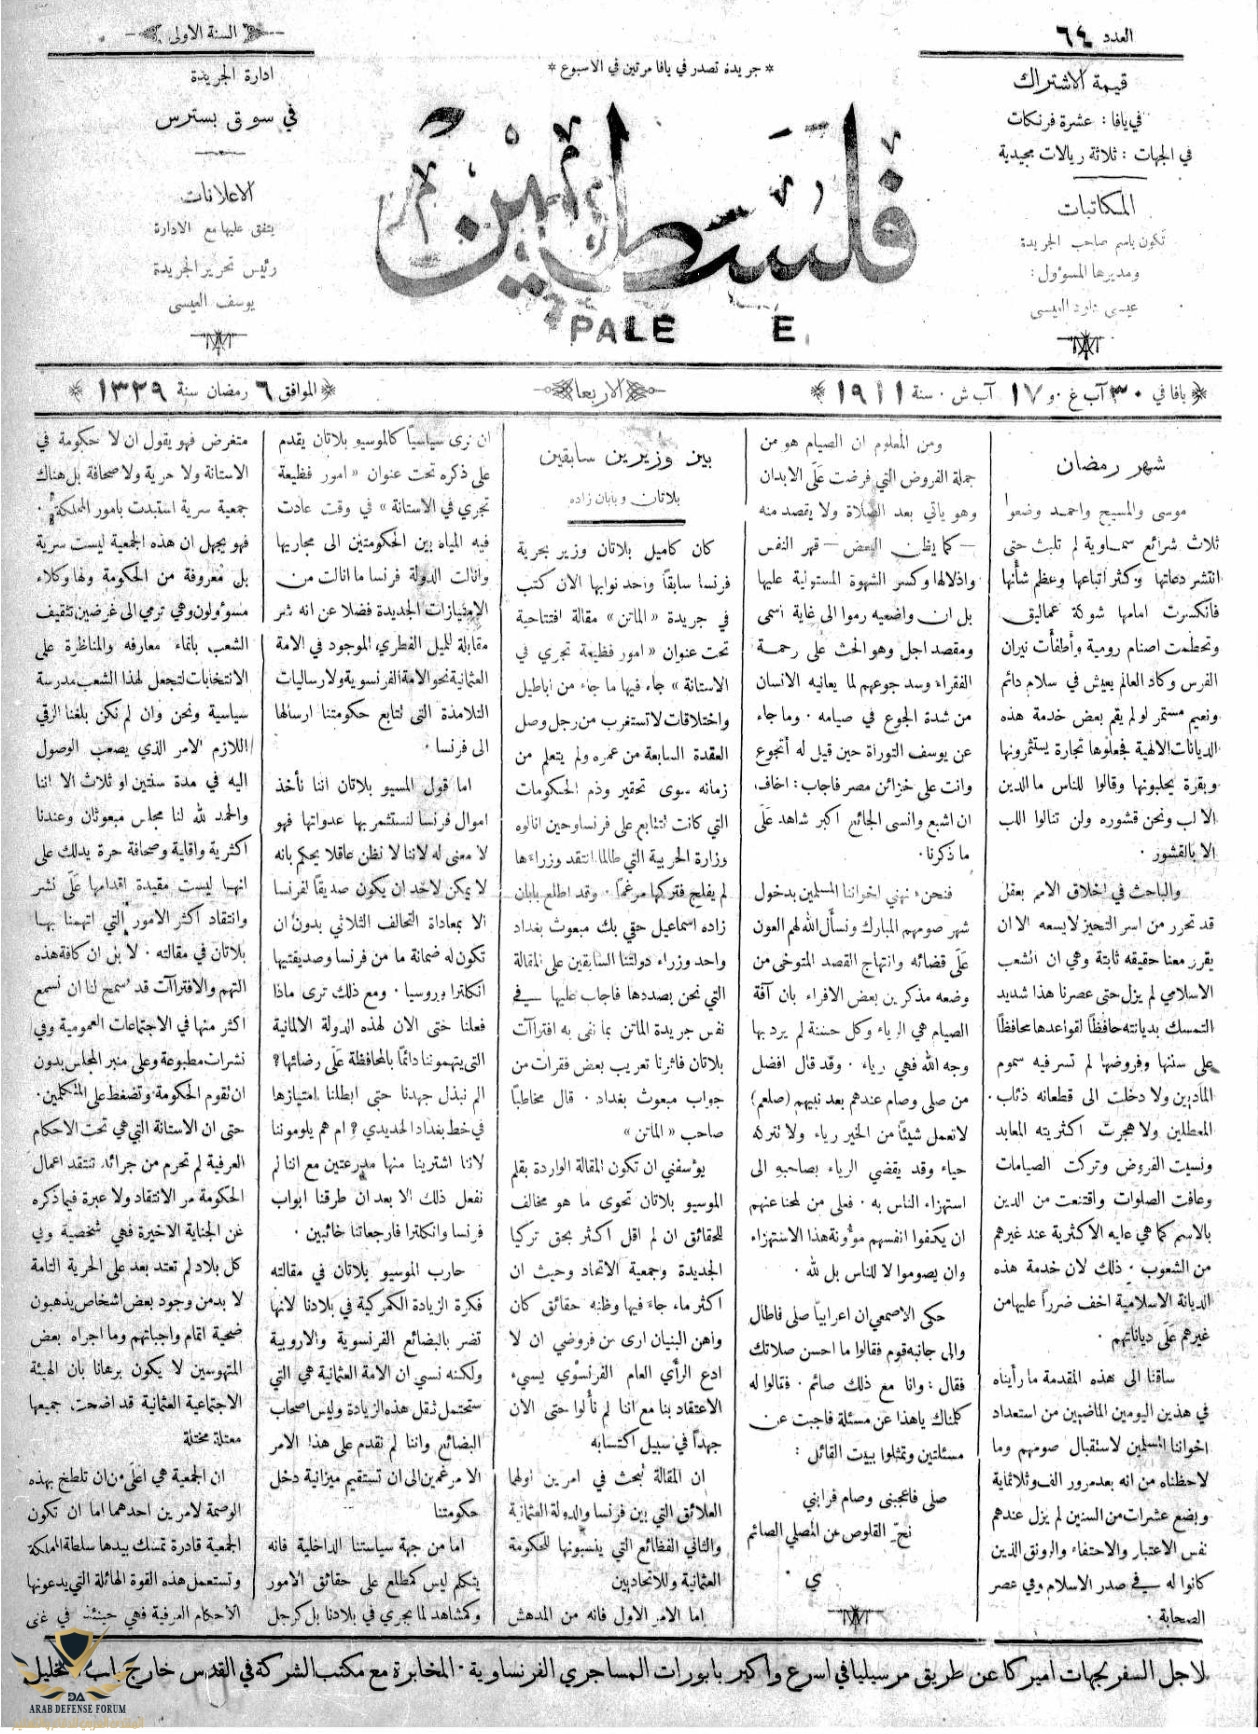 العدد ٦٤
السنة الاولى
* جريدة تصدر في يافا مرتين في الاسبوع *
قيمة الاشتراك
في يافا : عشرة فرنكات
في الجهات : ثلاثة ريالات مجيدية
المكاتبات
تكون باسم صاحب الجريدة
ومديرها المسؤول :
عيسى داود العيسى
فلسطين
PALE E
ادارة الجريدة
في سوق بسترس
الاعلانات
يتفق عليها مع الادارة
رئيس تحرير الجريدة
يوسف العيسى
يافا في ٣٠ آب غ ٠ و ١٧ آب ش ٠ سنة ١٩١١
الاربعا
الموافق ٦ رمضان سنة ١٣٢٩
شهر رمضان
موسى والمسيح واحمد وضعوا
ثلاث شرائع سماوية لم تلبث حتى
انتشر دعاتها وكثر اتباعها وعظم شأنها
فانكسرت امامها شوكة عماليق
وتحطمت اصنام رومية وأطفأت نيران
الفرس وكاد العالم يعيش في سلام دائم
ونعيم مستمر لو لم يقم بعض خدمة هذه
الديانات الالهية فجعلوها تجارة يستثمرونها
وبقرة يحلبونها وقالوا للناس ما الدين
الا لب ونحن قشوره ولن تنالوا اللب
الا بالقشور ٠
والباحث في اخلاق الامم بعقل
قد تحرر من اسر التحيز لا يسعه الا ان
يقرر معنا حقيقه ثابتة وهي ان الشعب
الاسلامي لم يزل حتى عصرنا هذا شديد
التمسك بديانته حافظاً لقواعدها محافظاً
على سننها وفروضها لم تسر فيه سموم
المادبين ولا دخلت الى قطعانه ذئاب
المعطلين ولا هجرت اكثريته المعابد
ونسيت الفروض وتركت الصيامات
وعافت الصلوات واقتنعت من الدين
بالاسم كما هي عليه الاكثرية عند غيرهم
من الشعوب ٠ ذلك لان خدمة هذه
الديانة الاسلامية اخف ضرراً عليها من
غيرهم على دياناتهم ٠
ساقنا الى هذه المقدمة ما رأيناه
في هذين اليومين الماضيين من استعداد
اخواننا المسلمين لاستقبال صومهم وما
لاحظناه من انه بعد مرور الف وثلاثماية
وبضع عشرات من السنين لم يزل عندهم
نفس الاعتبار والاحتفاء والرونق الذين
كانوا له في صدر الاسلام وفي عصر
الصحابة ٠
ومن المعلوم ان الصيام هو من
جملة الفروض التي فرضت على الابدان
وهو ياتي بعد الصلاة ولا يقصد منه
— كما يظن البعض — قهر النفس
واذلالها وكسر الشهوة المستولية عليها
بل ان واضعيه رموا الى غاية اسمى
ومقصد اجل وهو الحث على رحمة
الفقراء وسد جوعهم لما يعانيه الانسان
من شدة الجوع في صيامه ٠ وما جاء
عن يوسف التوراة حين قيل له أتجوع
وانت على خزائن مصر فاجاب : اخاف
ان اشبع وانسى الجائع اكبر شاهد على
ما ذكرنا ٠
فنحن نهني اخواننا المسلمين بدخول
شهر صومهم المبارك ونسأل الله لهم العون
على قضائه وانتهاج القصد المتوخى من
وضعه مذكرين بعض الافراء بان آفة
الصيام هي الرياء وكل حسنة لم يرد بها
وجه الله فهي رياء ٠ وقد قال افضل
من صلى وصام عندهم بعد نبيهم (صلعم)
لا تعمل شيئاً من الخير رياء ولا تتركه
حياء وقد يفضي الرياء بصاحبه الى
استهزاء الناس به ٠ فعلى من لمحنا عنهم
ان يكفوا انفسهم مؤونة هذا الاستهزاء
وان يصوموا لا للناس بل لله ٠
حكى الاصمعي ان اعرابياً صلى فاطال
والى جانبه قوم فقالوا ما احسن صلاتك
فقال : وانا مع ذلك صائم ٠ فقالوا له
كلمناك ياهذا عن مسئلة فاجبت عن
مسئلتين وتمثلوا ببيت القائل :
صلى فاعجبنى وصام فرابني
نحّ القلوص عن المصلي الصائم
ي ٠
بين وزيرين سابقين
بلاتان وبابان زاده
كان كاميل بلاتان وزير بحرية
فرنسا سابقاً واحد نوابها الان كتب
في جريدة « الماتن » مقالة افتتاحية
تحت عنوان « امور فظيعة تجري في
الاستانة » جاء فيها ما جاء من اباطيل
واختلاقات لا تستغرب من رجل وصل
العقدة السابعة من عمره ولم يتعلم من
زمانه سوى تحقير وذم الحكومات
التي كانت تتتابع على فرنسا وحين انالوه
وزارة الحربية التي طالما انتقد وزراءها
لم يفلح فتركها مرغماً ٠ وقد اطلع بابان
زاده اسماعيل حقي بك مبعوث بغداد
واحد وزراء دولتنا السابقين على المقالة
التي نحن بصددها فاجاب عليها في
نفس جريدة الماتن بما نفى به افتراآت
بلاتان فاثرنا تعريب بعض فقرات من
جواب مبعوث بغداد ٠ قال مخاطباً
صاحب « الماتن »
يؤسفني ان تكون المقالة الواردة بقلم
الموسيو بلاتان تحوى ما هو مخالف
للحقائق ان لم اقل اكثر بحق تركيا
الجديدة وجمعية الاتحاد وحيث ان
اكثر ماء جاء فيها وظنه حقائق كان
واهن البنيان ارى من فروضي ان لا
ادع الرأي العام الفرنسوي يسيء
الاعتقاد بنا مع اننا لم نألوا حتى الان
جهداً في سبيل اكتسابه
ان المقالة تبحث في امرين اولهما
العلائق التي بين فرنسا والدولة العثمانية
والثاني الفظائع التي ينسبونها للحكومة
العثمانية وللاتحاديين
اما الامر الاول فانه من المدهش
ان نرى سياسياً كالموسيو بلاتان يقدم
على ذكره تحت عنوان « امور فظيعة
تجري في الاستانة » في وقت عادت
فيه المياه بين الحكومتين الى مجاريها
وانالت الدولة فرنسا ما انالت من
الامتيازات الجديدة فضلا عن انه شر
مقابلة للميل الفطري الموجود في الامة
العثمانية نحو الامة الفرنسوية ولارساليات
التلامذة التي تتابع حكومتنا ارسالها
الى فرنسا ٠
اما قول المسيو بلاتان اننا نأخذ
اموال فرنسا لنستثمر بها عدواتها فهو
لا معنى له لاننا لا نظن عاقلا يحكم بانه
لا يمكن لاحد ان يكون صديقاً لفرنسا
الا بمعاداة التحالف الثلاثي بدون ان
تكون له ضمانة ما من فرنسا وصديقتيها
انكلترا وروسيا ٠ ومع ذلك ترى ماذا
فعلنا حتى الان لهذه الدولة الالمانية
التي يتهموننا دائماً بالمحافظة على رضائها ؟
الم نبذل جهدنا حتى ابطلنا امتيازها
في خط بغداد الحديدي ؟ ام هم يلوموننا
لاننا اشترينا منها مدرعتين مع اننا لم
نفعل ذلك الا بعد ان طرقنا ابواب
فرنسا وانكلترا فارجعاتنا خائبين ٠
حارب الموسيو بلاتان في مقالته
فكرة الزيادة الكمركية في بلادنا لانها
تضر بالبضائع الفرنسوية والاروبية
ولكنه نسي ان الامة العثمانية هي التي
ستحتمل ثقل هذه الزيادة وليس اصحاب
البضائع واننا لم نقدم على هذا الامر
الا مرغمين الى ان تستقيم ميزانية دخل
حكومتنا
اما من جهة سياستنا الداخلية فانه
يتكلم ليس كمطلع على حقائق الامور
وكمشاهد لما يجري في بلادنا بل كرجل
متغرض فهو يقول ان لا حكومة في
الاستانة ولا حرية ولا صحافة بل هناك
جمعية سرية استبدت بامور المملكة ٠
فهو يجهل ان هذه الجمعية ليست سرية
بل معروفة من الحكومة ولها وكلاء
مسؤولون وهي ترمي الى غرضين تثقيف
الشعب بانماء معارفه والمناظرة على
الانتخابات لتجعل لهذا الشعب مدرسة
سياسية ونحن وان لم نكن بلغنا الرقي
اللازم الامر الذي يصعب الوصول
اليه في مدة سنتين او ثلاث الا اننا
والحمد لله لنا مجلس مبعوثان وعندنا
اكثرية واقلية وصحافة حرة يدلك على
انها ليست مقيدة اقدامها على نشر
وانتقاد اكثر الامور التي اتهمنا بها
بلاتان في مقالته ٠ لا بل ان كافة هذه
التهم والافتراآت قد سمح لنا ان نسمع
اكثر منها في الاجتماعات العمومية وفي
نشرات مطبوعة وعلى منبر المجلس بدون
ان تقوم الحكومة وتضغط على المتكلمين ٠
حتى ان الاستانة التي هي تحت الاحكام
العرفية لم تحرم من جرائد تنتقد اعمال
الحكومة مر الانتقاد ولا عبرة فيما ذكره
عن الجناية الاخيرة فهي شخصية وفي
كل بلاد لم تعتد بعد على الحرية التامة
لا بد من وجود بعض اشخاص يذهبون
ضحية اتمام واجباتهم وما اجراه بعض
المتهوسين لا يكون برهانا بان الهيئة
الاجتماعية العثمانية قد اضحت جميعها
معتلة مختلة
ان الجمعية هي اعلى من ان تلطخ بهذه
الوصمة لامرين احدهما اما ان تكون
الجمعية قادرة تمسك بيدها سلطة المملكة
وتستعمل هذه القوة الهائلة التي يدعونها
الاحكام العرفية فهي حينئذ في غنى
لاجل السفر لجهات اميركا عن طريق مرسيليا في اسرع واكبر بابورات المساجري الفرنساوية ٠ المخابرة مع مكتب الشركة في القدس خارج باب الخليل
DA
ARAB DEFENSE FORUM